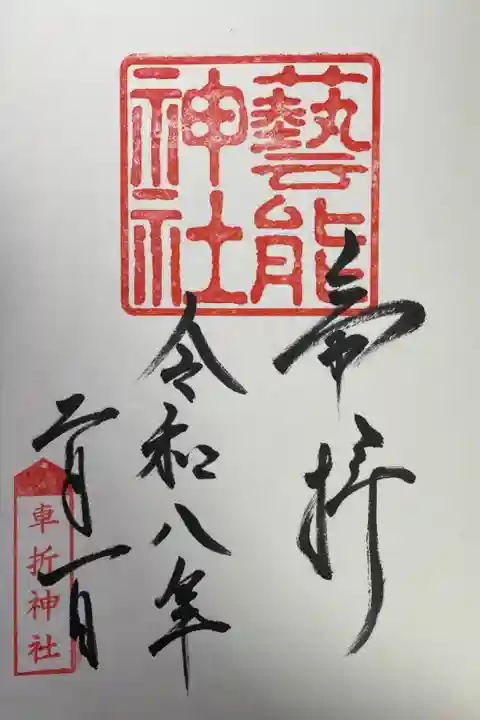 藝能神社
奉拝
令和八年
二月一日
車折神社